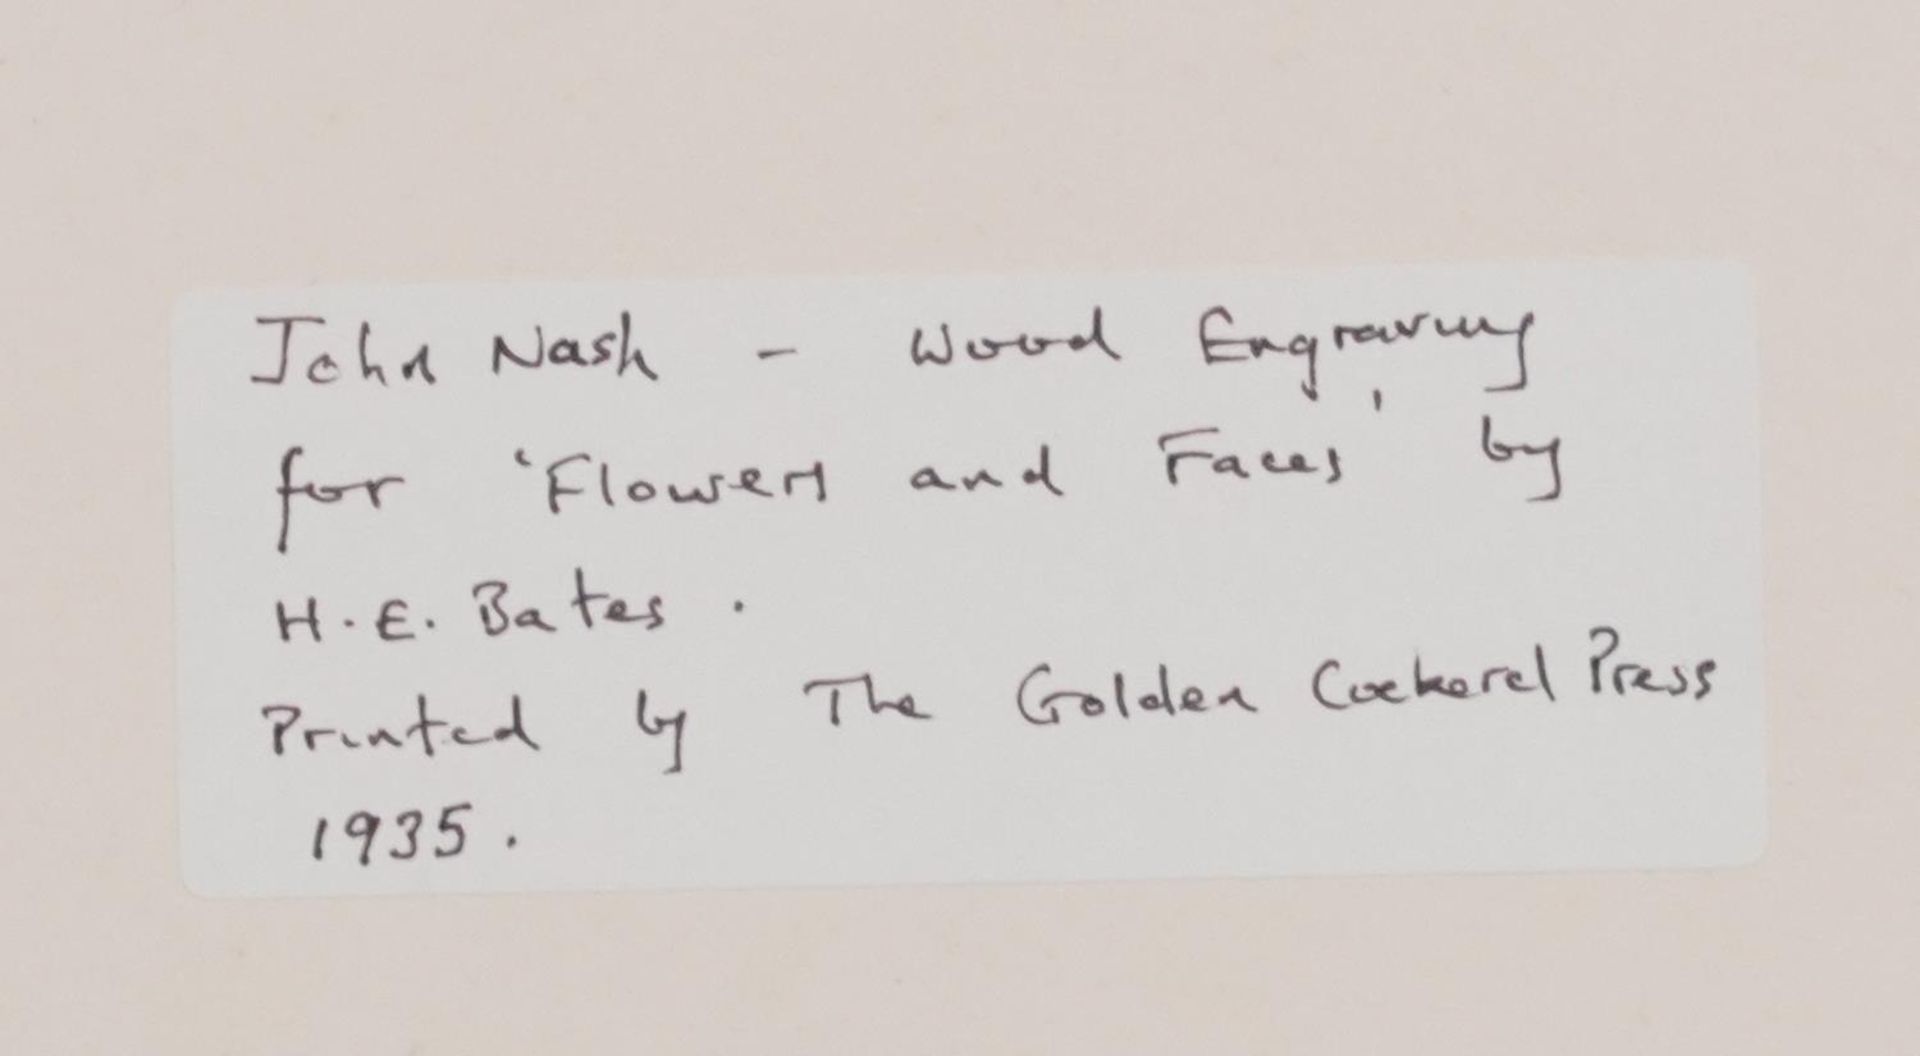 John Nash - Wood Engraving
for 'Flowers and Faces' by
H.E. Bates.
Printed by The Golden Cockerel Press
1935.